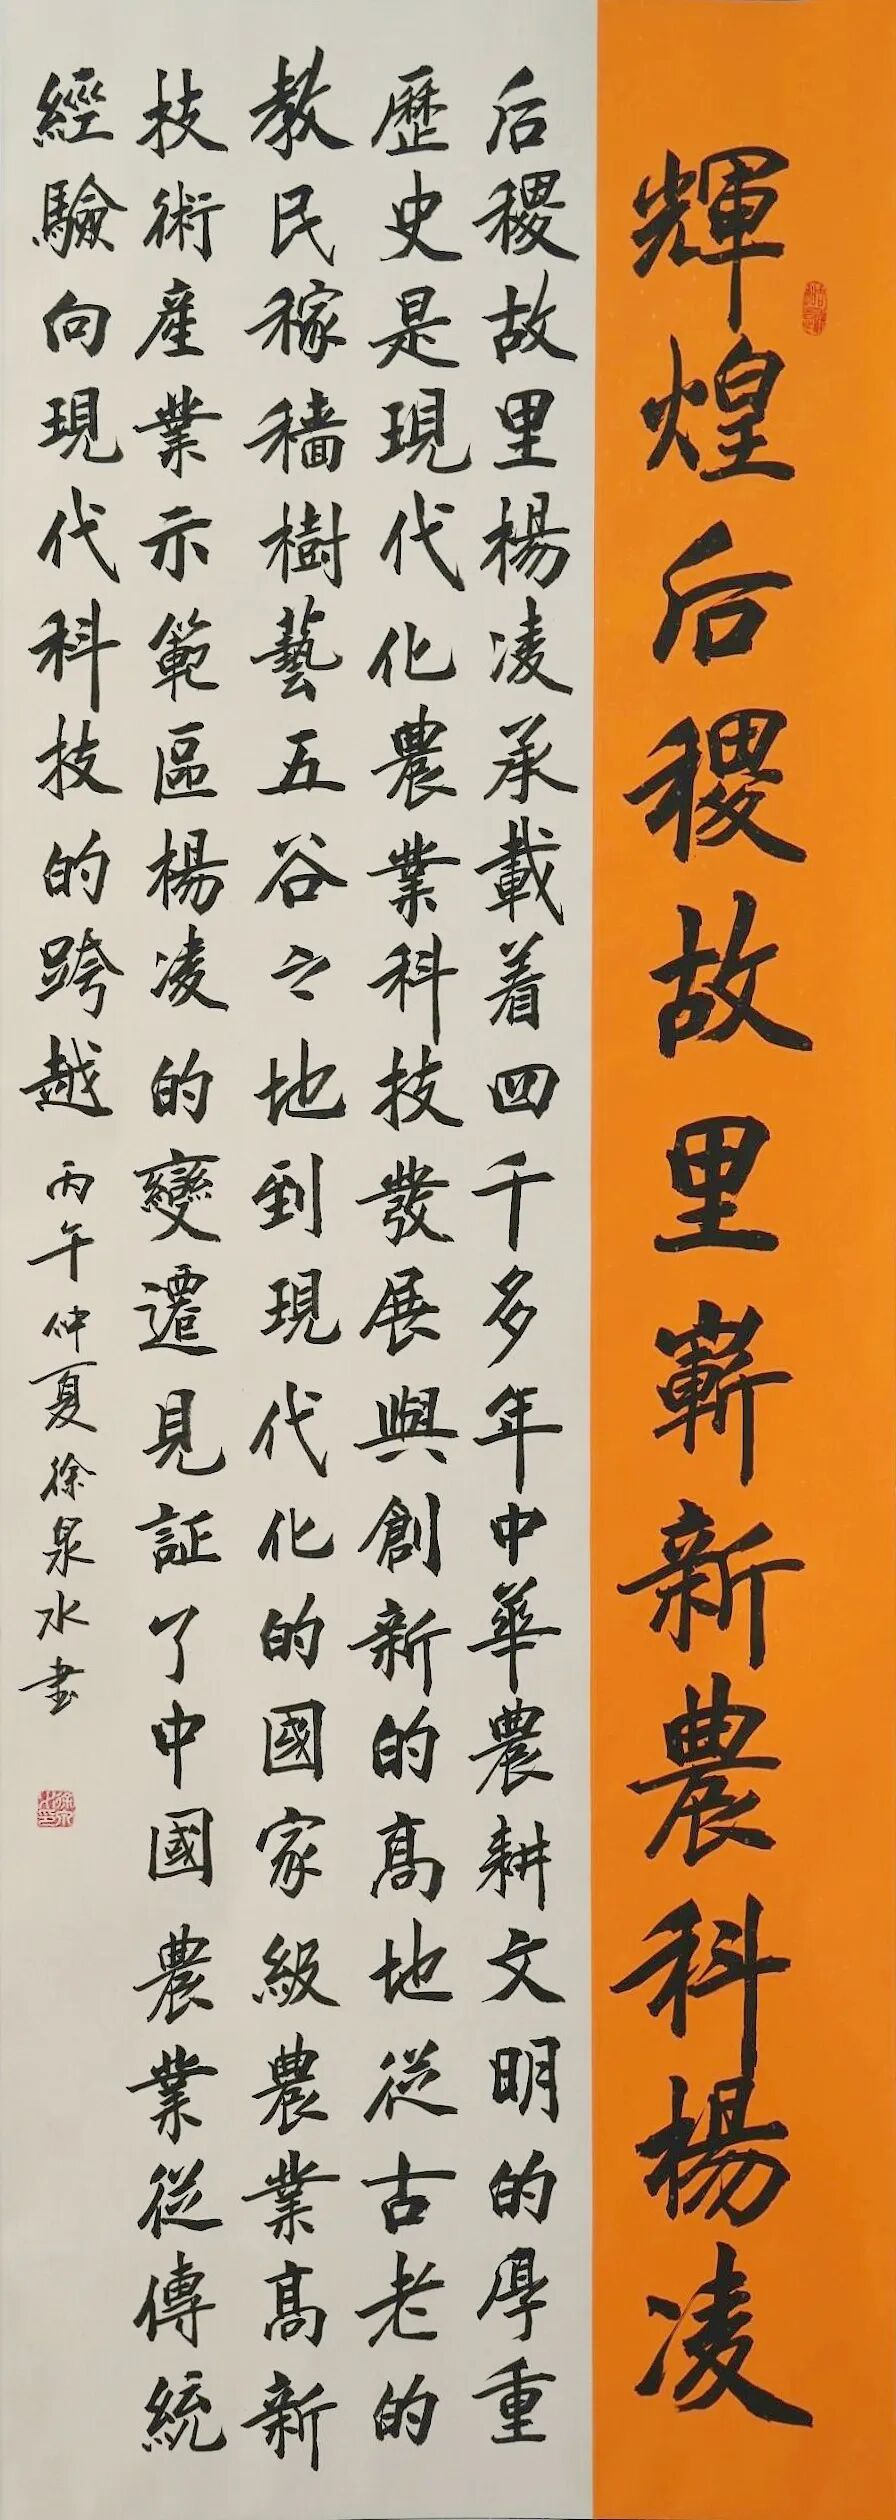 輝煌后稷故里嶄新農科楊凌
后稷故里楊凌承載着四千多年中華農耕文明的厚重
歷史是現代化農業科技發展與創新的高地從古老的
教民稼穡樹藝五谷之地到現代化的國家級農業高新
技術產業示範區楊凌的變遷見証了中國農業從傳統
經驗向現代科技的跨越
丙午仲夏徐泉水書